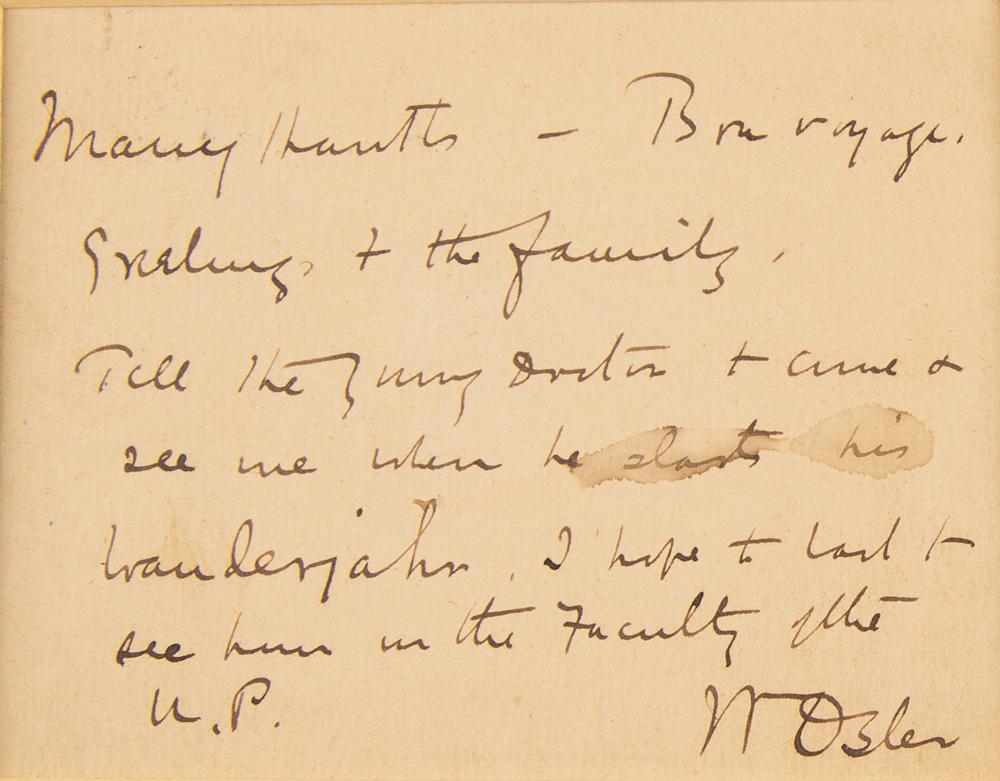 Many thanks — Bon voyage.
Greetings to the family.
Tell the young Doctor to come &
see me when he starts his
wanderjahr. I hope to last to
see him in the Faculty of the
U.P. W Osler